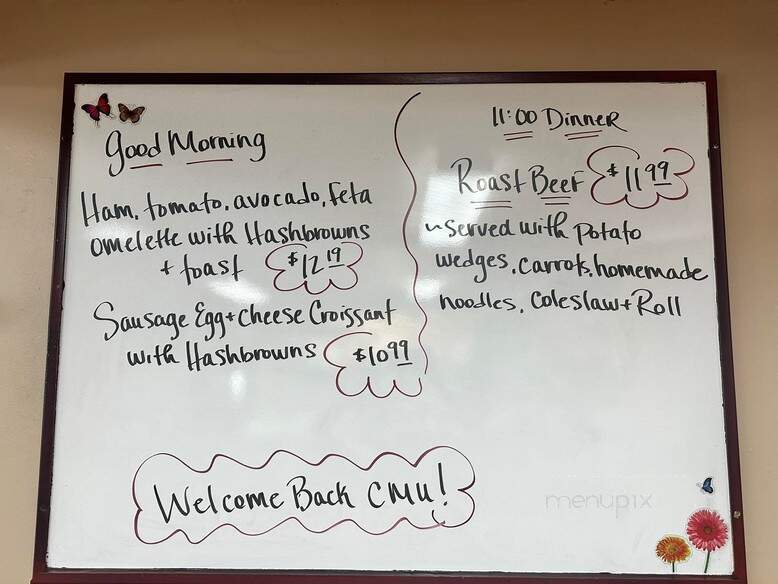 Good Morning
Ham, tomato, avocado, feta
omelette with Hashbrowns
+ toast $12.19
Sausage Egg + cheese Croissant
with Hashbrowns $10.99
11:00 Dinner
Roast Beef $11.99
~ Served with Potato
wedges, carrots, homemade
noodles, Coleslaw + Roll
Welcome Back CMU!
menupix